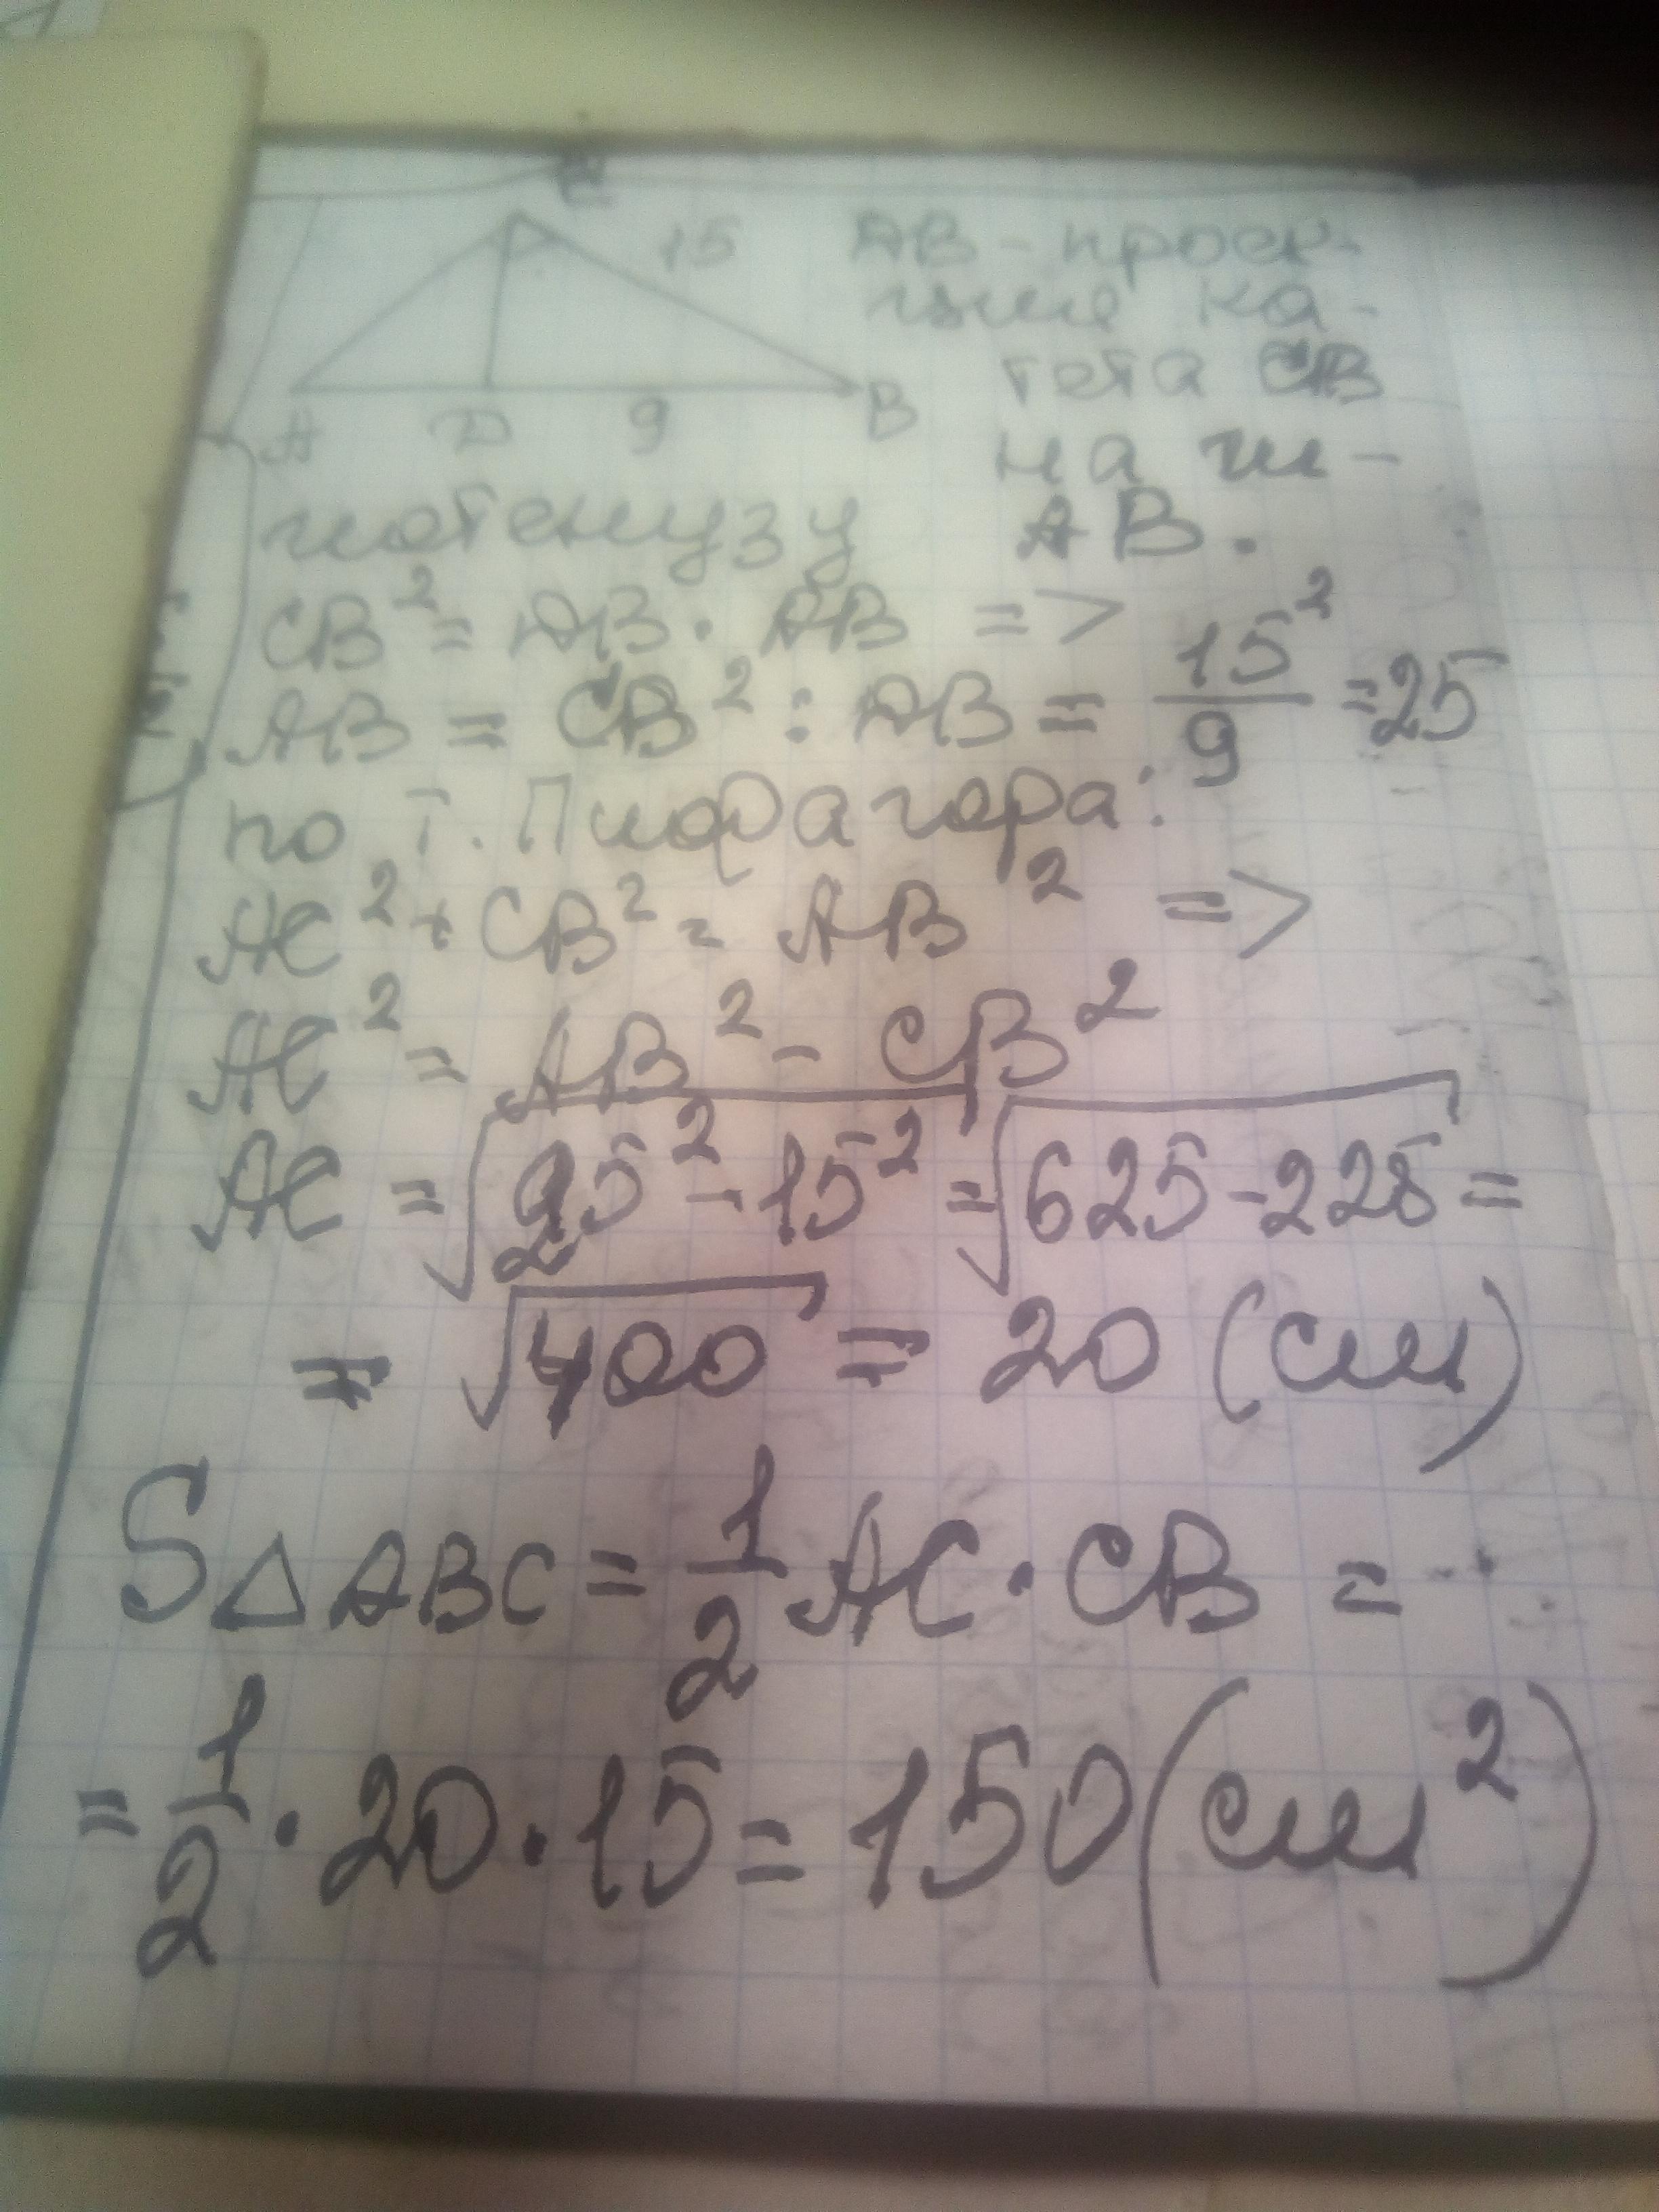 C
15
A D 9 B
DB - проек-
ция ка-
тета CB
на ги-
потенузу AB.
CB² = DB · AB =>
AB = CB² : DB = 15²/9 = 25
по т. Пифагора:
AC² + CB² = AB² =>
AC² = AB² - CB²
AC = √25² - 15² = √625 - 225 =
= √400 = 20 (см)
S△ABC = 1/2 AC · CB =
= 1/2 · 20 · 15 = 150 (см²)